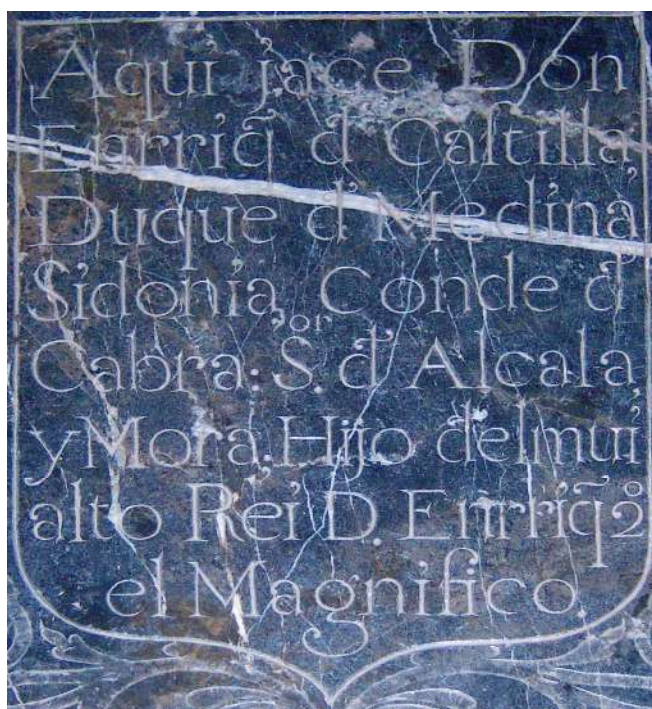 Aqui jace Don
Enrriq̃ d̃ Caſtilla,
Duque d̃ Medina
Sidonia, Conde d̃
Cabra: S.or d̃ Alcala,
y Mora. Hijo del mui
alto Rei D. Enrriq̃ 2º
el Magnifico